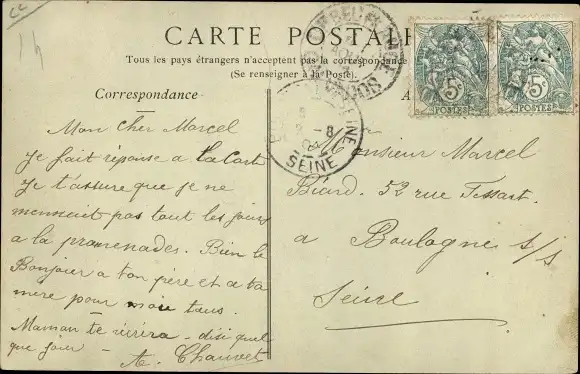 CARTE POSTALE
Tous les pays étrangers n'acceptent pas la correspondance
(Se renseigner à la Poste).
Correspondance
Mon cher Marcel
je fait réponse a ta Cart
je t'assure que je ne
mennuit pas tout les jours
a la promenades. Bien le
Bonjoier a ton père et a ta
mère pour moi tous.
Maman te écrira - disi quel
que jour -
A. Chauvet
Monsieur Marcel
Biard. 52 rue Tissart.
a Boulogne s/s
Seine
5c
POSTES
5c
POSTES
8
2 -8
04
SEINE